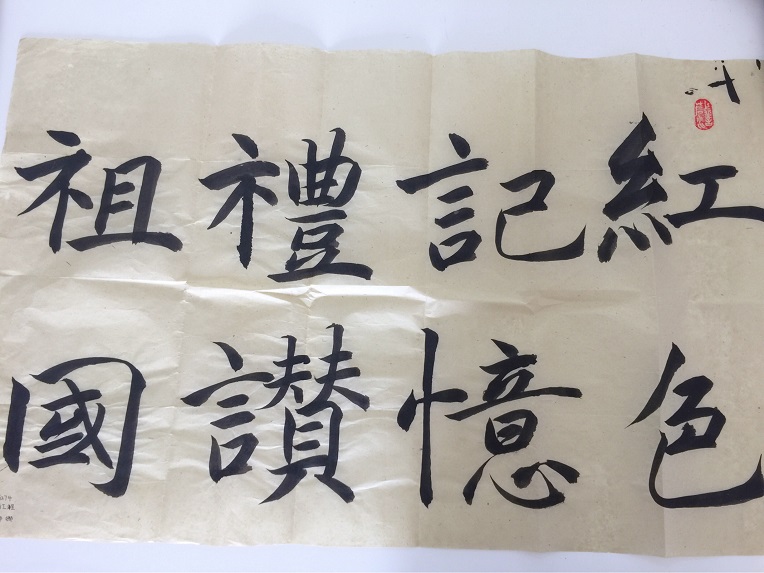 紅色
記憶
禮讃
祖國